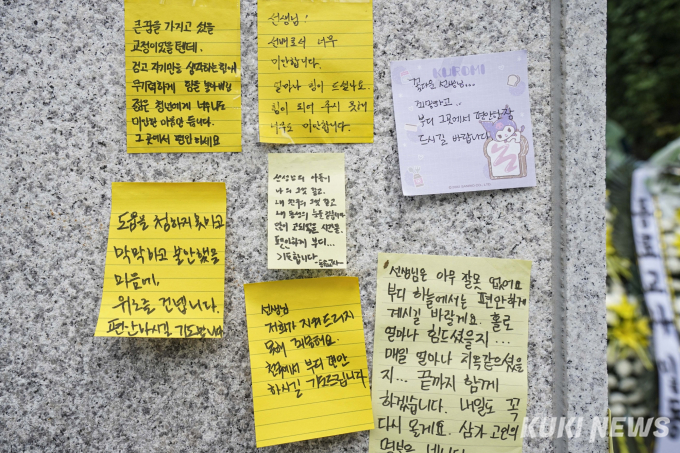 큰꿈을 가지고 섰을
교정이었을텐데.
참고 자기만을 생각하는 힘에
무기력하게 힘을
젊은 청년에게 너무나도
미안한 마음만 듭니다.
그곳에서 편안하세요
선생님!
선배로서 너무
미안합니다.
얼마나 힘이 드셨나요.
힘이 되어 주지 못해
너무도 미안합니다.
KUROMI
꽃다운 선생님...
미안하고..
부디 그곳에서 편안한잠
드시길 바랍니다.
선생님의 아픔이
나의 것 같고.
내 친구의 것 같고
내 동생의
편안하게 부디...
기도합니다.
도움을 청하지 못하고
막막하고 불안했을
마음에,
위로를 건넵니다.
편안하시길 기도합니다
선생님
저희가 지켜드리지
못해 죄송해요.
천국에서 부디 편안
하시길 기도드립니다
선생님은 아무 잘못 없어요
부디 하늘에서는 편안하게
계시길 바랄게요. 홀로
얼마나 힘드셨을지...
매일 얼마나 지옥같으셨을
지... 끝까지 함께
하겠습니다. 내일도 꼭
다시 올게요. 삼가 고인의
명복을 빕니다
KUKI NEWS